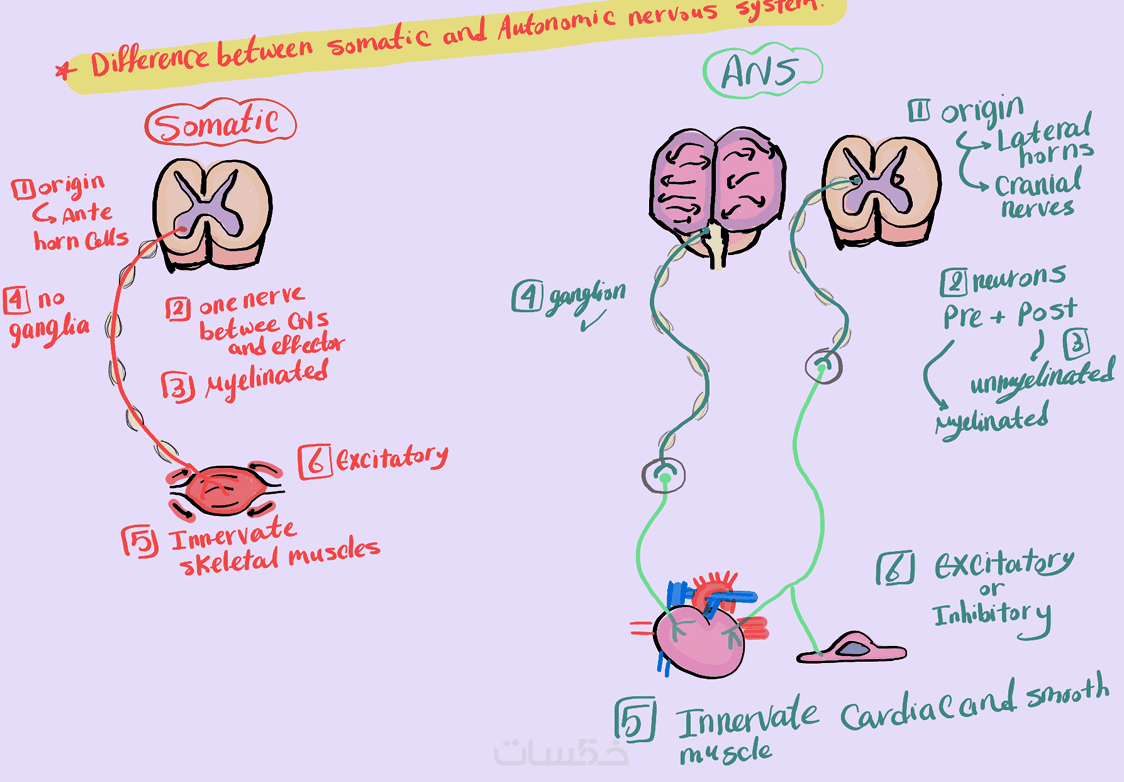 * Difference between somatic and Autonomic nervous system.
Somatic
1 origin
Ante
horn Cells
4 no
ganglia
2 one nerve
betwee CNS
and effector
3 Myelinated
6 Excitatory
5 Innervate
skeletal muscles
ANS
1 origin
Lateral
horns
Cranial
nerves
4 ganglion
2 neurons
Pre + Post
3
unmyelinated
Myelinated
6 Excitatory
or
Inhibitory
5 Innervate Cardiac and smooth
muscle
خمسات